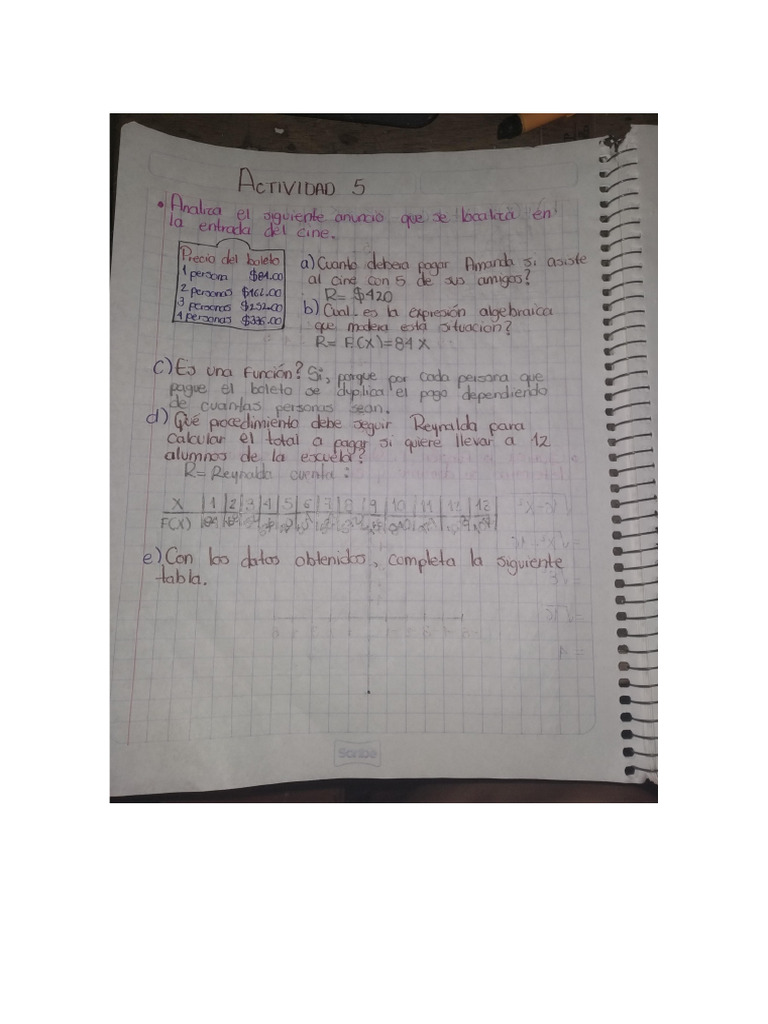 ACTIVIDAD 5
• Analiza el siguiente anuncio que se localiza en
la entrada del cine.
Precio del boleto
1 persona $84.00
2 personas $168.00
3 personas $252.00
4 personas $336.00
a) Cuanto debera pagar Amanda si asiste
al cine con 5 de sus amigos?
R= $420
b) Cual es la expresión algebraica
que modera esta situacion?
R= F(X)=84 X
c) Es una Función? Si, porque por cada persona que
pague el boleto se duplica el pago dependiendo
de cuantas personas sean.
d) Qué procedimiento debe seguir Reynalda para
calcular el total a pagar si quiere llevar a 12
alumnos de la escuela?
R= Reynalda cuenta :
X 1 2 3 4 5 6 7 8 9 10 11 12 12
F(X) 84
e) Con los datos obtenidos, completa la siguiente
tabla.
Scribe